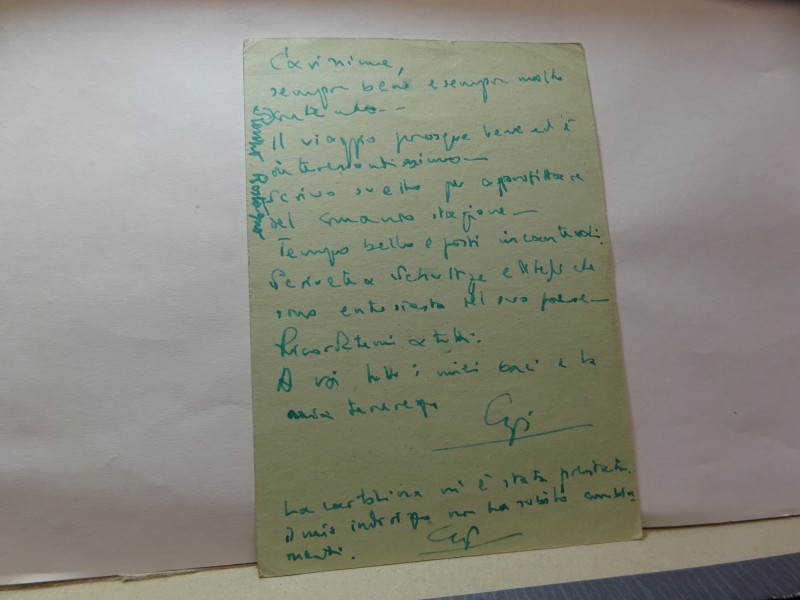 Carissime,
sempre bene e sempre molto
Il viaggio prosegue bene ed è
interessantissimo —
Scrivo svelto per approfittare
del stazione —
Tempo bello e posti incantevoli.
Scrivete a Schultze e ditegli che
sono entusiasta del suo paese —
Ricordatemi a tutti.
A voi tutti i miei baci e la
mia tenerezza
La cartolina mi è stata prestata.
il mio indirizzo non ha subito cambia
menti.